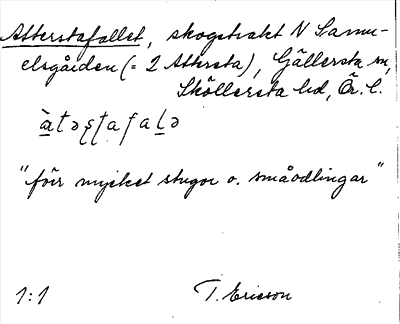 Atterstafallet, skogstrakt N Samu-
elsgården (= 2 Attersta), Gällersta sn,
Sköllersta hd, Ör. l.
"förr mycket stugor o. småodlingar"
1:1 T. Ericson